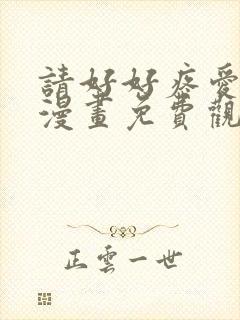 請好好疼愛
漫畫免費觀
正雲一世